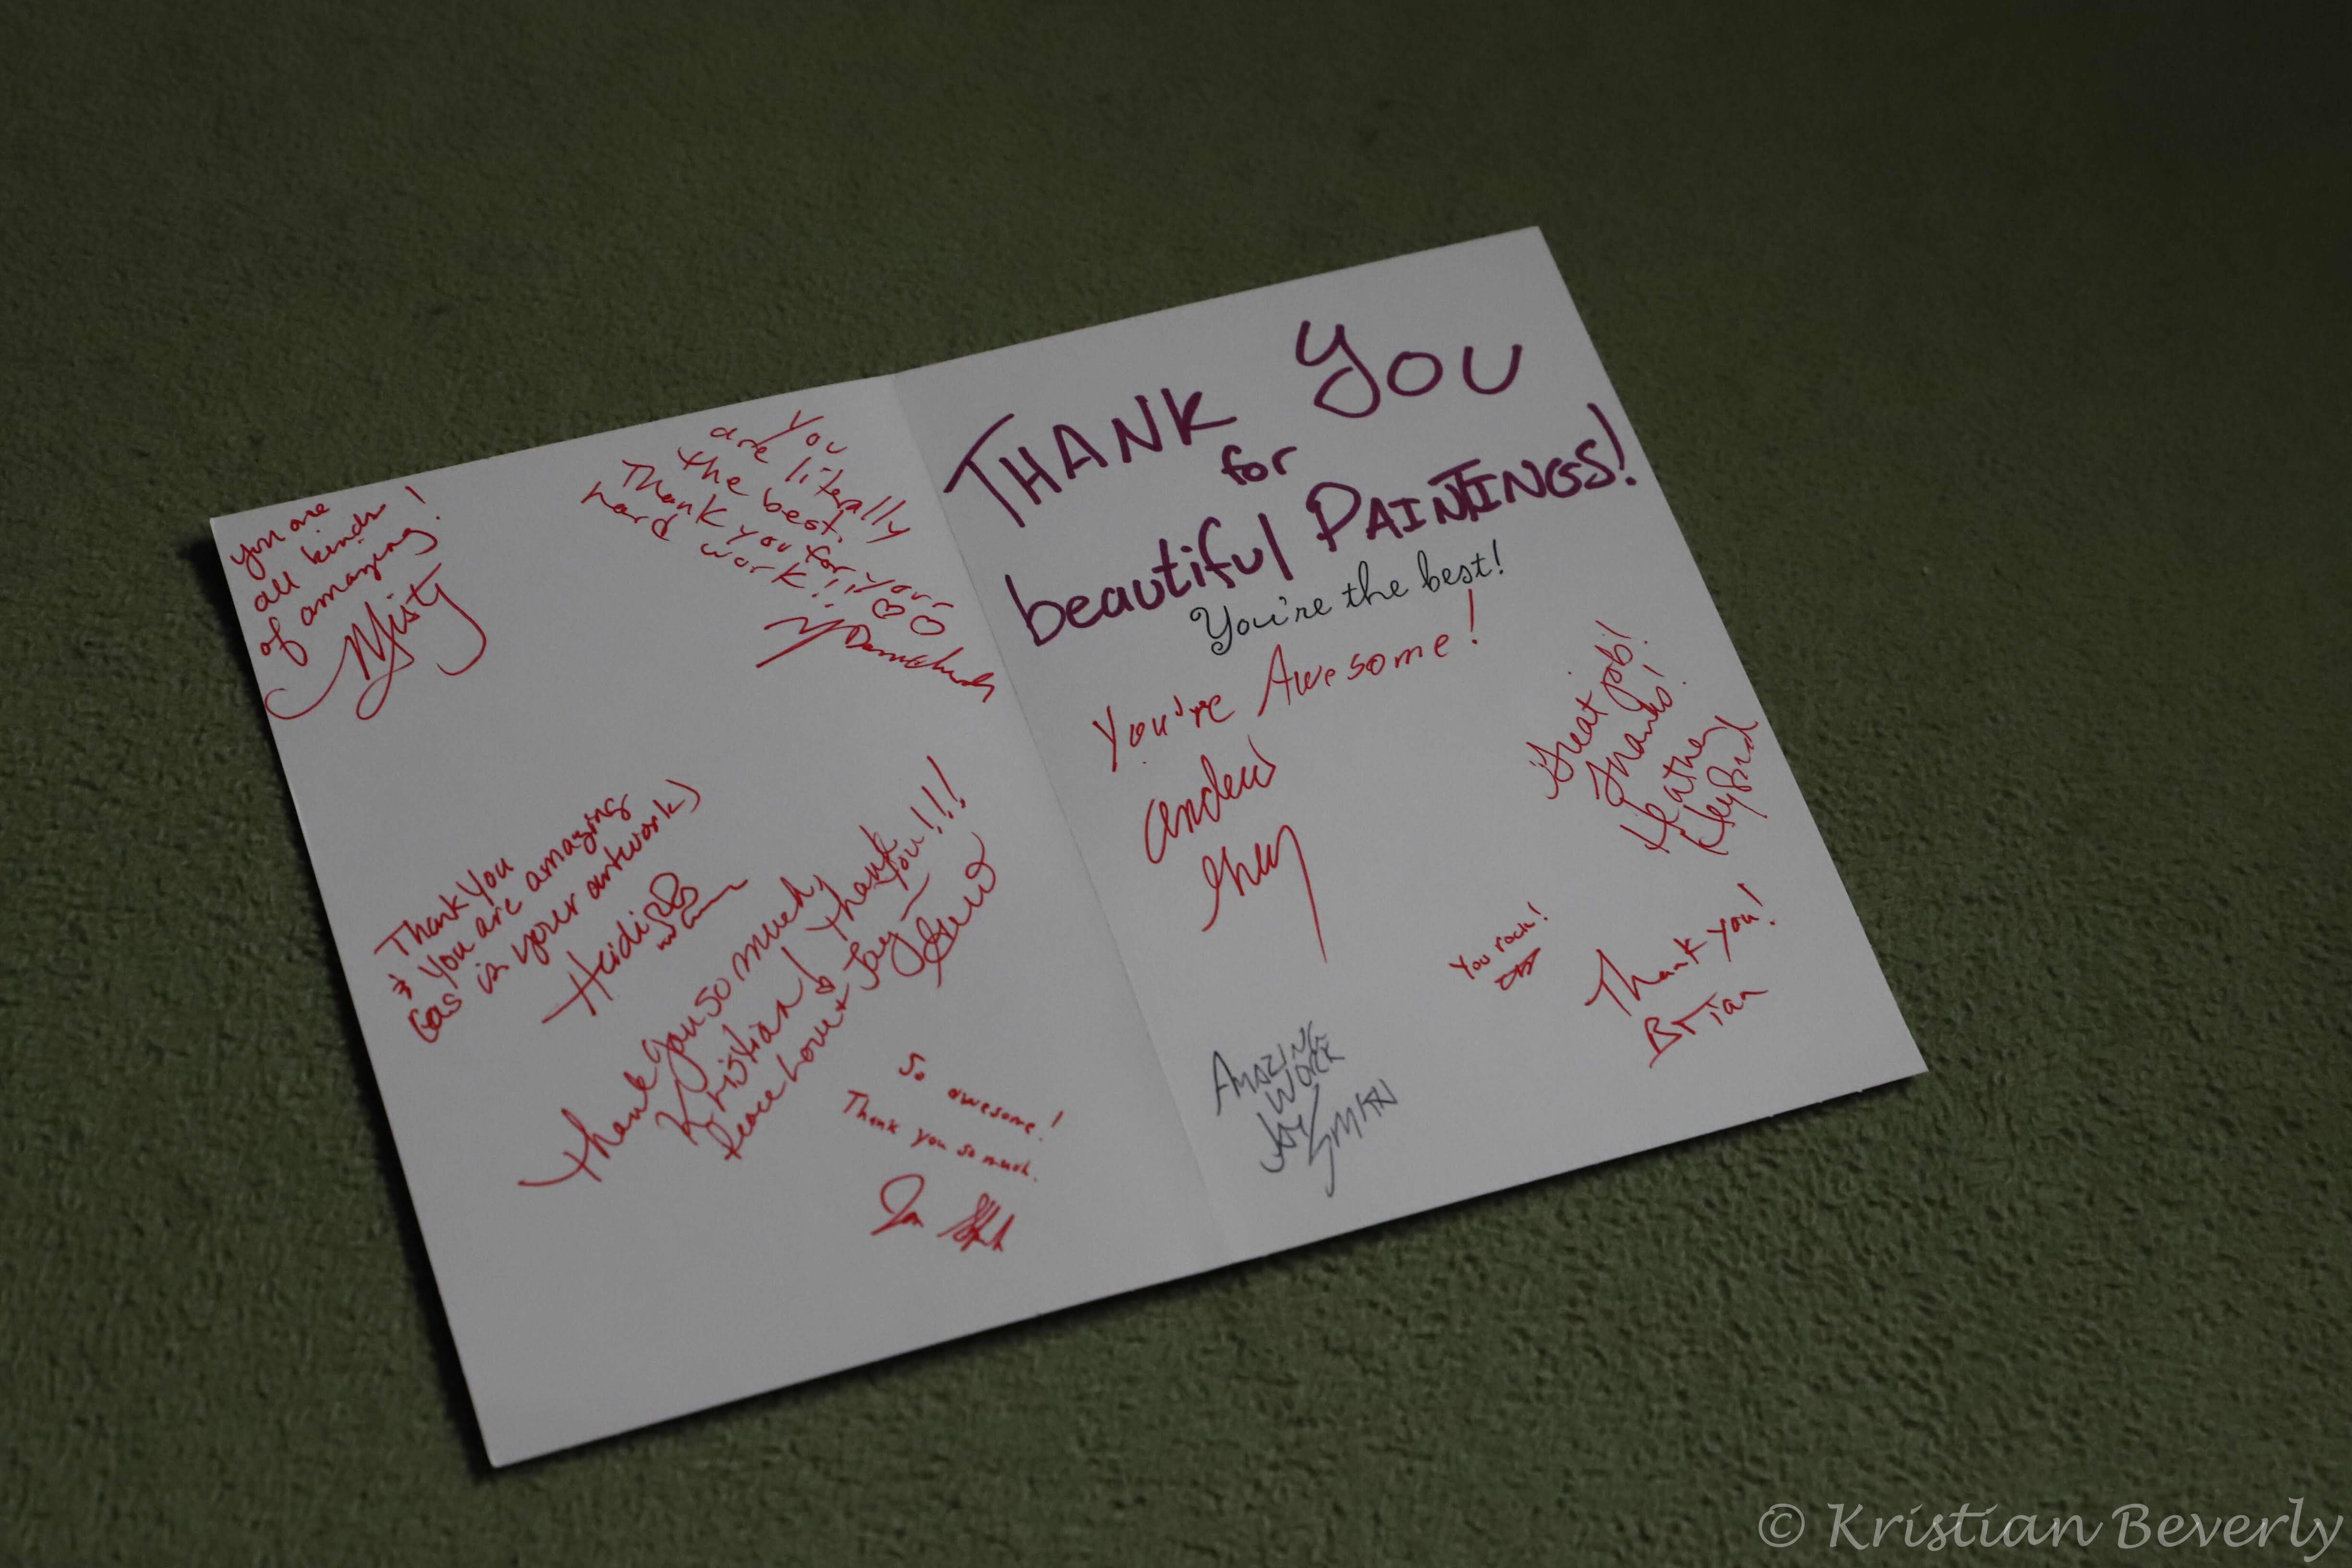 you are
all kinds
of amazing!
Misty
You
are literally
the best.
Thank you for your
hard work!!
Thank You
& you are amazing
(as is your artwork)
Heidi
Thank you so much,
Kristian! Thank You!!!
Peace Love & Joy
So awesome!
Thank you so much.
THANK YOU
for
beautiful PAINTINGS!
You're the best!
You're Awesome!
Great job!
Thanks!
Heather
You rock!
Thank you!
Brian
AMAZING
WORK
© Kristian Beverly